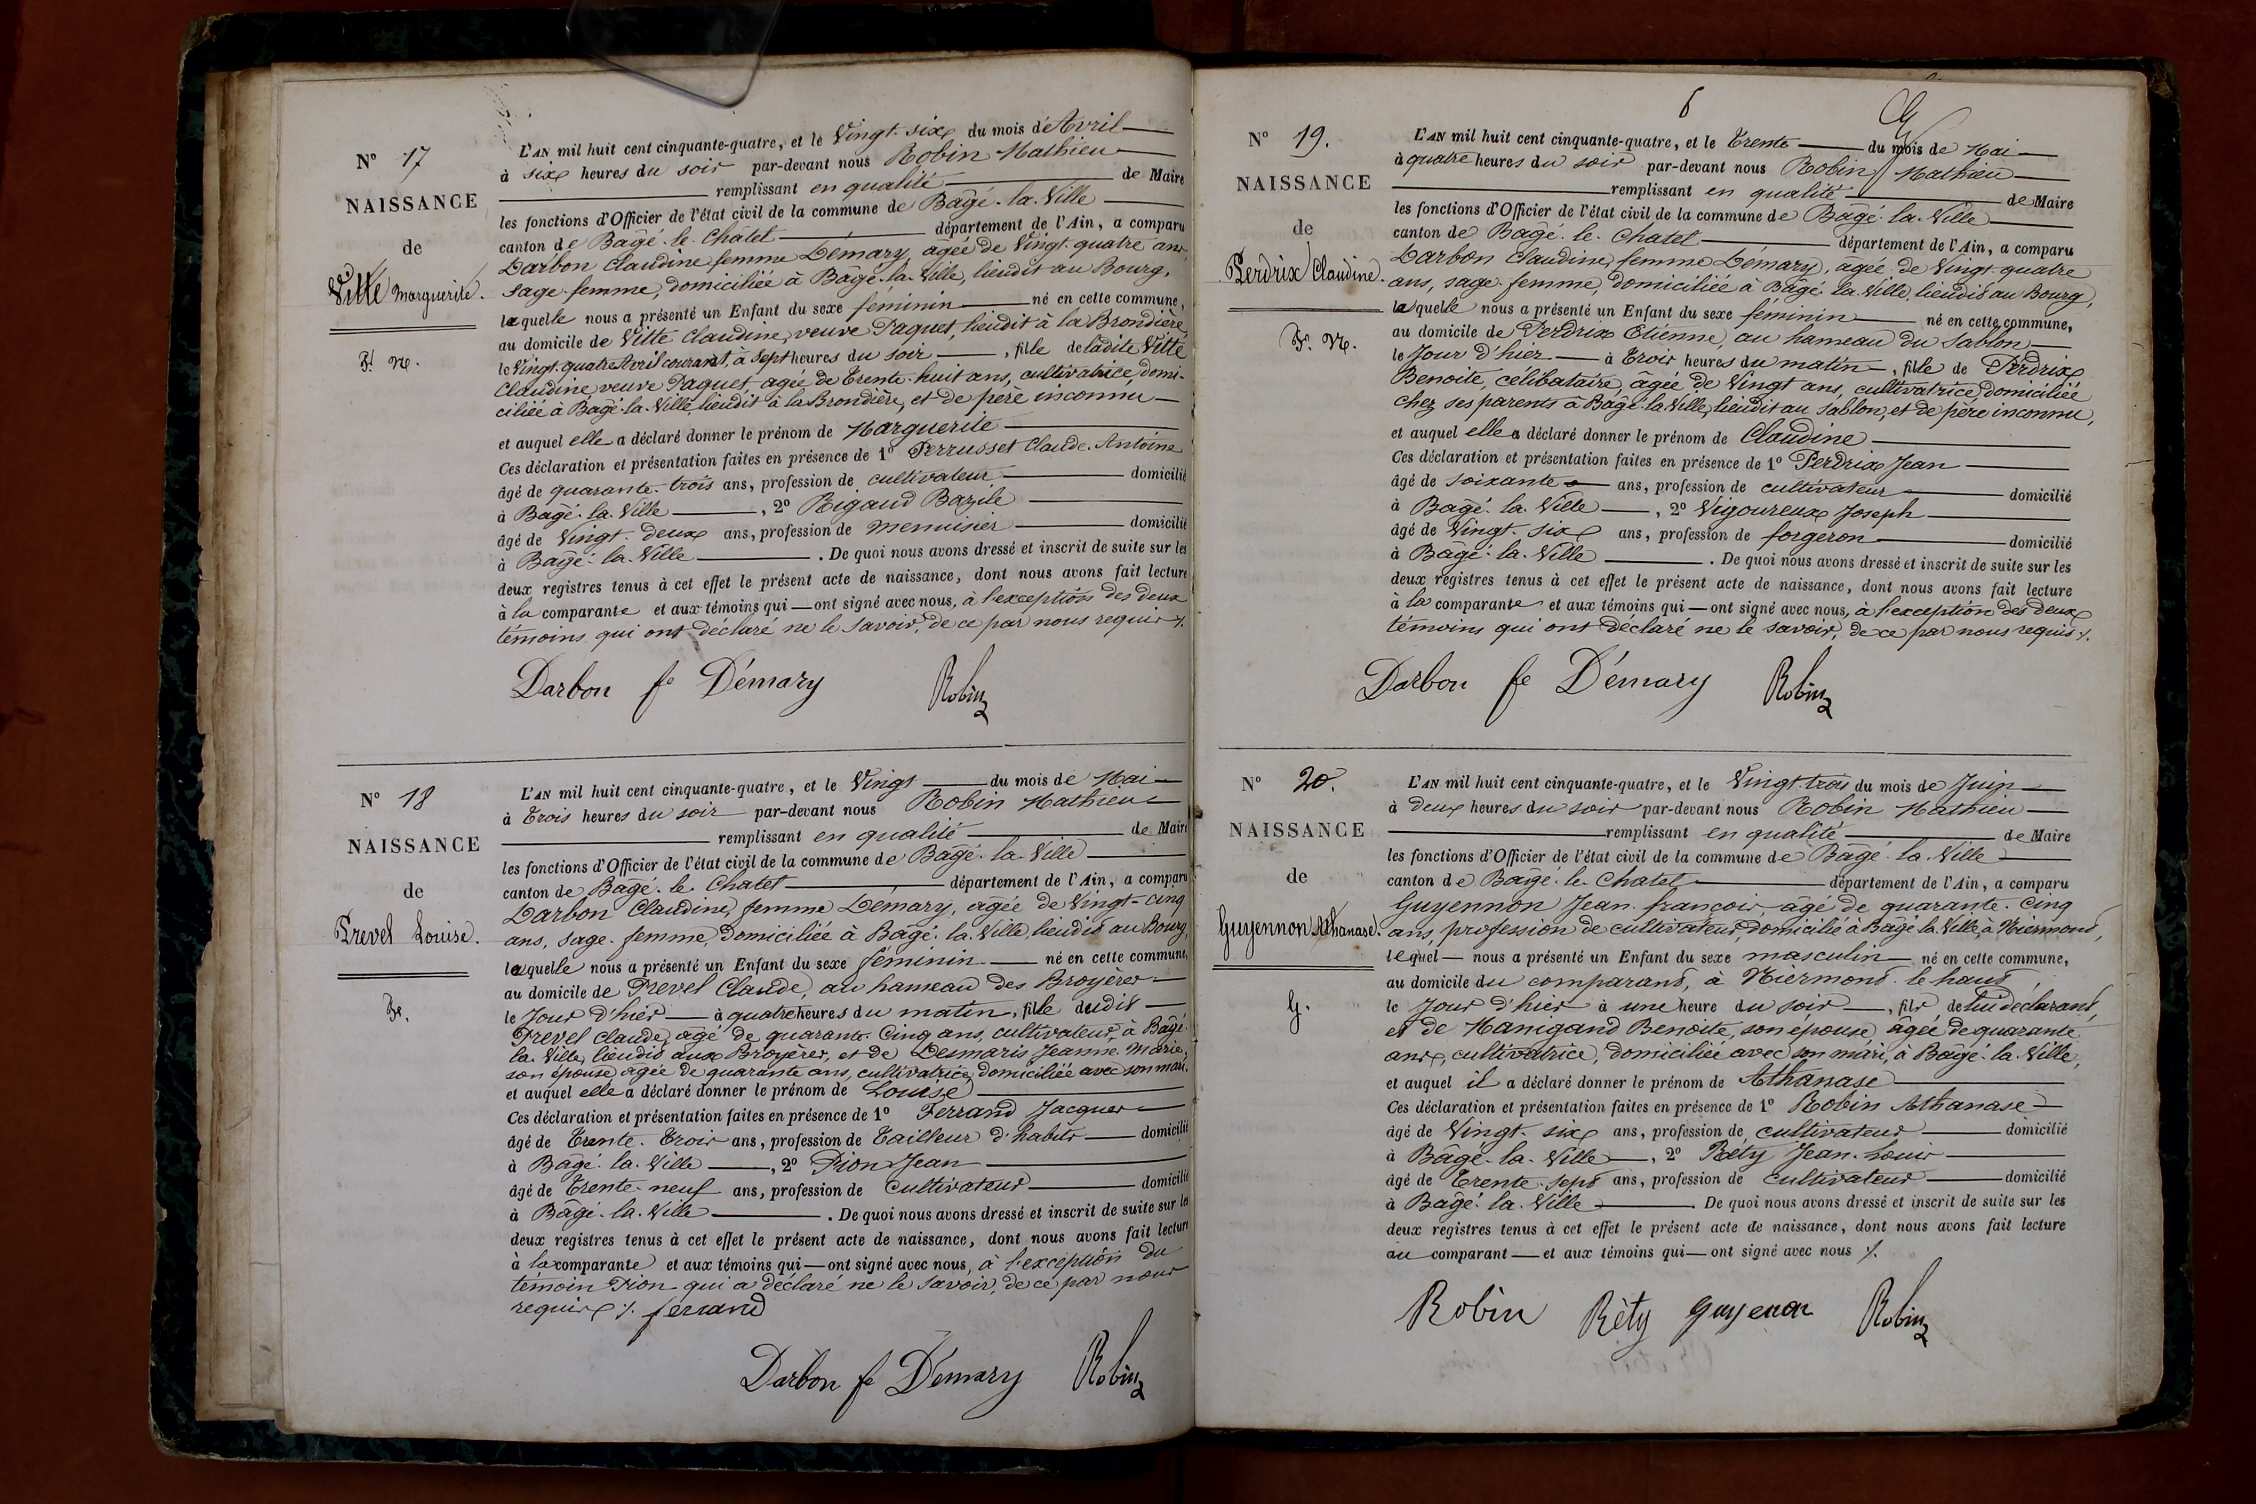 N° 17
NAISSANCE
de
Vitte Marguerite.
F. N.
L'AN mil huit cent cinquante-quatre, et le Vingt-six du mois d'Avril
à six heures du soir par-devant nous Robin Mathieu
remplissant en qualité de Maire
les fonctions d'Officier de l'état civil de la commune de Bâgé-la-Ville
canton de Bâgé-le-Châtel département de l'Ain, a comparu
Darbon Claudine femme Démary, âgée de Vingt-quatre ans,
sage-femme, domiciliée à Bâgé-la-Ville, lieudit au Bourg,
laquelle nous a présenté un Enfant du sexe féminin né en cette commune,
au domicile de Vitte Claudine, veuve Paquet, lieudit à la Brondière,
le Vingt-quatre Avril courant, à sept heures du soir, fille de ladite Vitte
Claudine, veuve Paquet, agée de trente-huit ans, cultivatrice, domi-
ciliée à Bâgé-la-Ville, lieudit à la Brondière, et de père inconnu
et auquel elle a déclaré donner le prénom de Marguerite
Ces déclaration et présentation faites en présence de 1° Perrusset Claude-Antoine
âgé de quarante-trois ans, profession de cultivateur domicilié
à Bagé-la-Ville, 2° Rigaud Bazile
âgé de Vingt-deux ans, profession de menuisier domicilié
à Bâgé-la-Ville. De quoi nous avons dressé et inscrit de suite sur les
deux registres tenus à cet effet le présent acte de naissance, dont nous avons fait lecture
à la comparante et aux témoins qui — ont signé avec nous, à l'exception des deux
témoins qui ont déclaré ne le savoir, de ce par nous requis ./.
Darbon fe Démary Robin
N° 18
NAISSANCE
de
Prevel Louise.
F.
L'AN mil huit cent cinquante-quatre, et le Vingt du mois de Mai
à trois heures du soir par-devant nous Robin Mathieu
remplissant en qualité de Maire
les fonctions d'Officier de l'état civil de la commune de Bâgé-la-Ville
canton de Bagé-le-Chatel département de l'Ain, a comparu
Darbon Claudine, femme Démary, âgée de Vingt-cinq
ans, sage-femme, domiciliée à Bâgé-la-Ville, lieudit au Bourg,
laquelle nous a présenté un Enfant du sexe féminin né en cette commune,
au domicile de Prevel Claude, au hameau des Broyères
le Jour d'hier à quatre heures du matin, fille dudit
Prevel Claude, agé de quarante-cinq ans, cultivateur, à Bâgé-
la-Ville, lieudit aux Broyères, et de Desmaris Jeanne-Marie,
son épouse, agée de quarante ans, cultivatrice, domiciliée avec son mari,
et auquel elle a déclaré donner le prénom de Louise
Ces déclaration et présentation faites en présence de 1° Ferrand Jacques
âgé de trente-trois ans, profession de tailleur d'habits domicilié
à Bâgé-la-Ville, 2° Pion Jean
âgé de trente-neuf ans, profession de cultivateur domicilié
à Bâgé-la-Ville. De quoi nous avons dressé et inscrit de suite sur les
deux registres tenus à cet effet le présent acte de naissance, dont nous avons fait lecture
à la comparante et aux témoins qui — ont signé avec nous, à l'exception du
témoin Pion qui a déclaré ne le savoir, de ce par nous
requis ./. ferrand
Darbon fe Démary Robin
6
N° 19.
NAISSANCE
de
Perdrix Claudine.
F. N.
L'AN mil huit cent cinquante-quatre, et le trente du mois de Mai
à quatre heures du soir par-devant nous Robin Mathieu
remplissant en qualité de Maire
les fonctions d'Officier de l'état civil de la commune de Bâgé-la-Ville
canton de Bagé-le-Chatel département de l'Ain, a comparu
Darbon Claudine, femme Démary, âgée de Vingt-quatre
ans, sage-femme, domiciliée à Bâgé-la-Ville, lieudit au Bourg,
laquelle nous a présenté un Enfant du sexe féminin né en cette commune,
au domicile de Perdrix Etienne, au hameau du Sablon
le Jour d'hier à trois heures du matin, fille de Perdrix
Benoite, célibataire, âgée de Vingt ans, cultivatrice, domiciliée
chez ses parents à Bâgé-la-Ville, lieudit au Sablon, et de père inconnu,
et auquel elle a déclaré donner le prénom de Claudine
Ces déclaration et présentation faites en présence de 1° Perdrix Jean
âgé de soixante ans, profession de cultivateur domicilié
à Bâgé-la-Ville, 2° Vigoureux Joseph
âgé de Vingt-six ans, profession de forgeron domicilié
à Bâgé-la-Ville. De quoi nous avons dressé et inscrit de suite sur les
deux registres tenus à cet effet le présent acte de naissance, dont nous avons fait lecture
à la comparante et aux témoins qui — ont signé avec nous, à l'exception des deux
témoins qui ont déclaré ne le savoir, de ce par nous requis ./.
Darbon fe Démary Robin
N° 20.
NAISSANCE
de
Guyennon Athanase.
G.
L'AN mil huit cent cinquante-quatre, et le Vingt-trois du mois de Juin
à deux heures du soir par-devant nous Robin Mathieu
remplissant en qualité de Maire
les fonctions d'Officier de l'état civil de la commune de Bâgé-la-Ville
canton de Bagé-le-Chatel département de l'Ain, a comparu
Guyennon Jean-françois âgé de quarante-cinq
ans, profession de cultivateur, domicilié à Bâgé-la-Ville, à Niermond,
lequel — nous a présenté un Enfant du sexe masculin né en cette commune,
au domicile du comparant, à Niermont-le-haut,
le Jour d'hier à une heure du soir, fils de lui déclarant,
et de Manigand Benoite, son épouse, âgée de quarante
ans, cultivatrice, domiciliée avec son mari, à Bâgé-la-Ville,
et auquel il a déclaré donner le prénom de Athanase
Ces déclaration et présentation faites en présence de 1° Robin Athanase
âgé de Vingt-six ans, profession de cultivateur domicilié
à Bâgé-la-Ville, 2° Réty Jean-Louis
âgé de trente-sept ans, profession de cultivateur domicilié
à Bâgé-la-Ville. De quoi nous avons dressé et inscrit de suite sur les
deux registres tenus à cet effet le présent acte de naissance, dont nous avons fait lecture
au comparant — et aux témoins qui — ont signé avec nous ./.
Robin Réty guyenon Robin